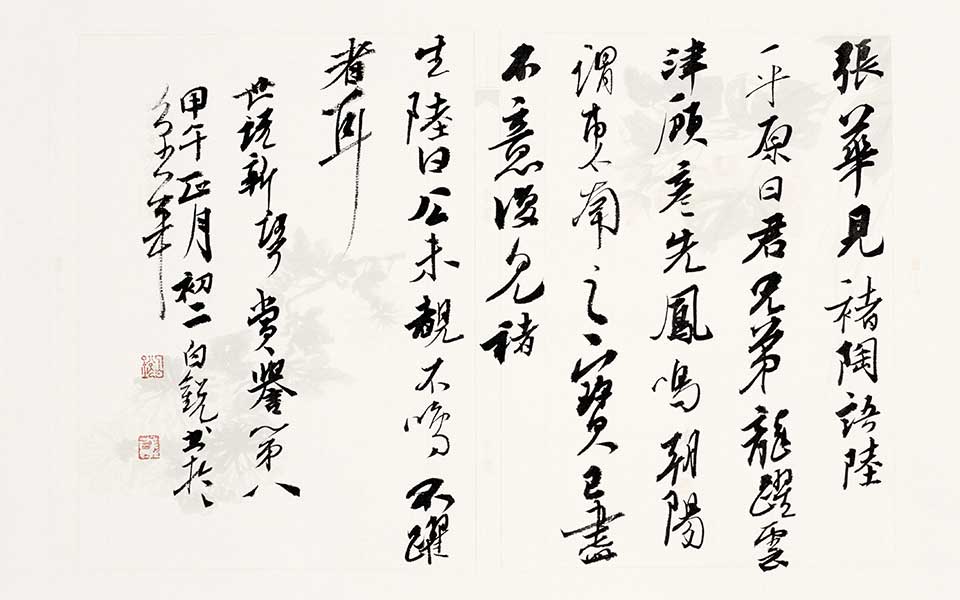 張華見褚陶語陸
平原曰君兄弟龍躍雲
津顧彥先鳳鳴朝陽
謂東南之寶已盡
不意復見褚
生陸曰公未覩不鳴不躍
者耳
世說新語賞譽第八
甲午正月初二白銳書於